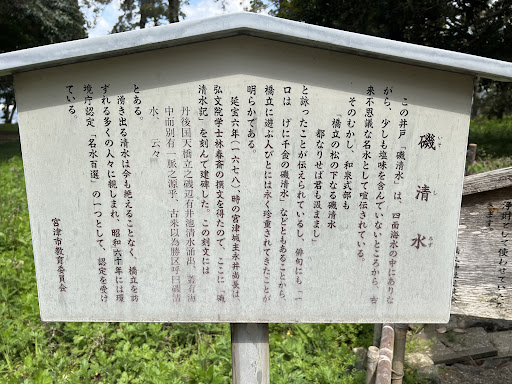 磯清水
いそ し みず
この井戸「磯清水」は、四面海水の中にありな
がら、少しも塩味を含んでいないところから、古
来不思議な名水として喧伝されている。
そのむかし、和泉式部も
「橋立の松の下なる磯清水
都なりせば君も汲ままし」
と詠ったことが伝えられているし、俳句にも「一
口は げに千金の磯清水」などともあることから、
橋立に遊ぶ人びとには永く珍重されてきたことが
明らかである。
延宝六年(一六七八)、時の宮津城主永井尚長は
弘文院学士林春斎の撰文を得たので、ここに「磯
清水記」を刻んで建碑した。この刻文には
丹後国天橋立之磯辺有井池清水涌出、蓋有海
中而別有一脈之源乎、古来以為勝区呼曰磯清
水、云々
とある。
湧き出る清水は今も絶えることなく、橋立を訪
ずれる多くの人々に親しまれ、昭和六十年には環
境庁認定「名水百選」の一つとして、認定を受け
ている。
宮津市教育委員会
浄財して使わせていた